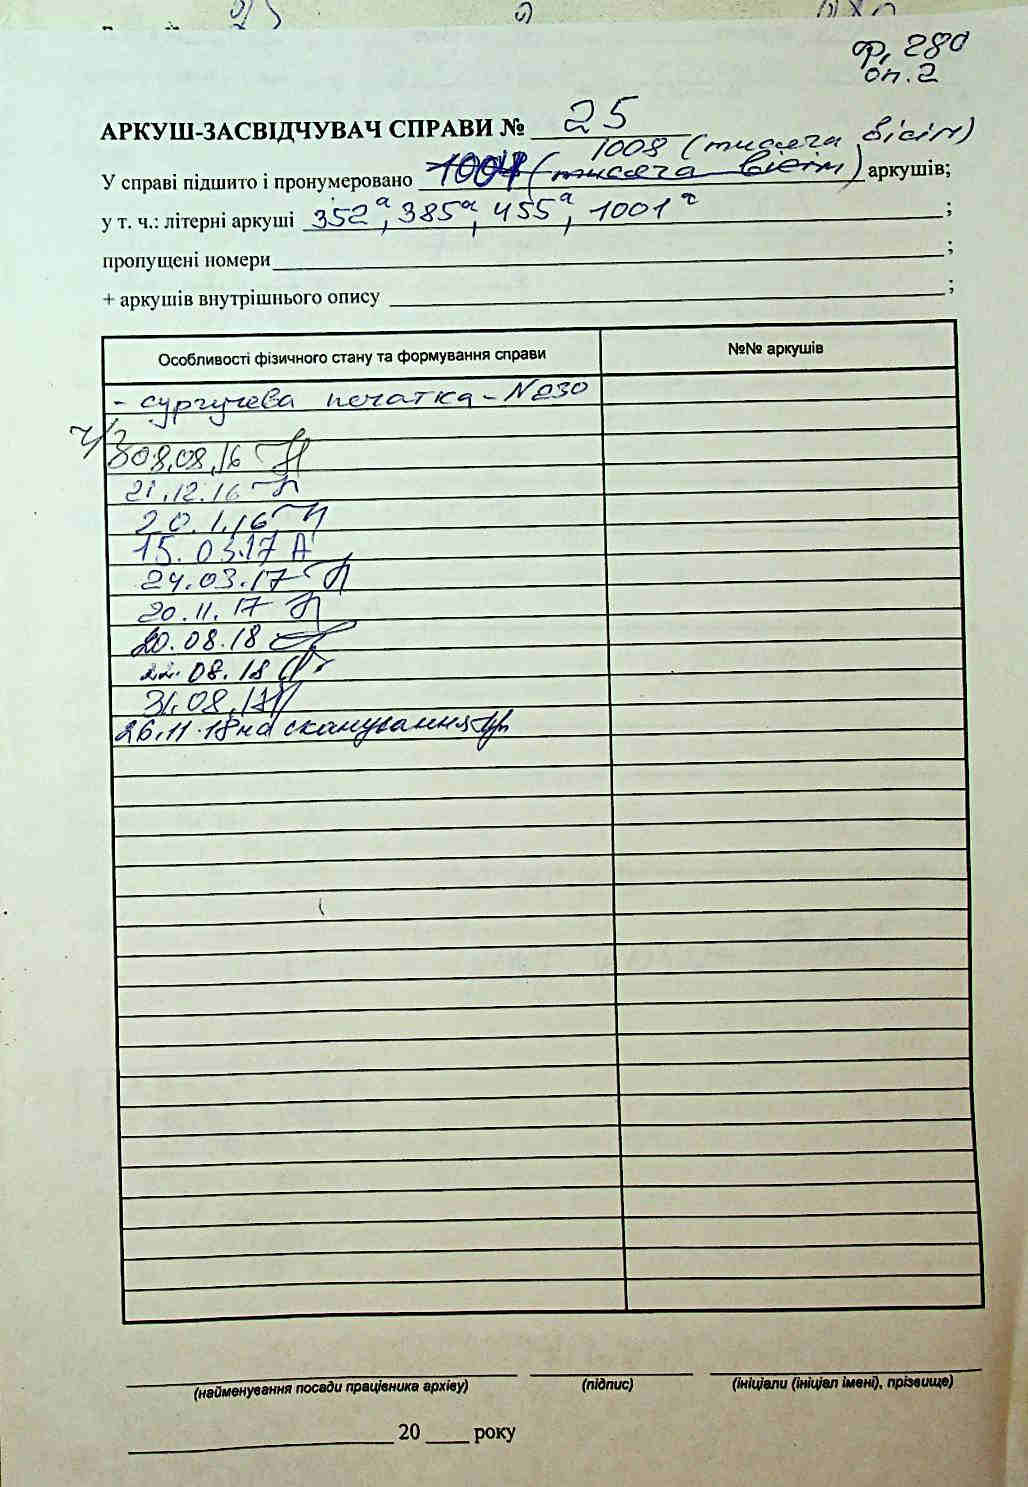 ф. 280
оп. 2
АРКУШ-ЗАСВІДЧУВАЧ СПРАВИ № 25
1008 (тисяча вісім)
У справі підшито і пронумеровано 1004 (тисяча вісім) аркушів;
у т. ч.: літерні аркуші 352а, 385а, 455а, 1001а ;
пропущені номери ;
+ аркушів внутрішнього опису ;
Особливості фізичного стану та формування справи №№ аркушів
- сургучева печатка - №230
ч/з
08.08.16
21.12.16
20.1.16
15.03.17
24.03.17
20.11.17
20.08.18
22.08.18
31.08.
26.11.18 на сканування
(найменування посади працівника архіву) (підпис) (ініціали (ініціал імені), прізвище)
20 року